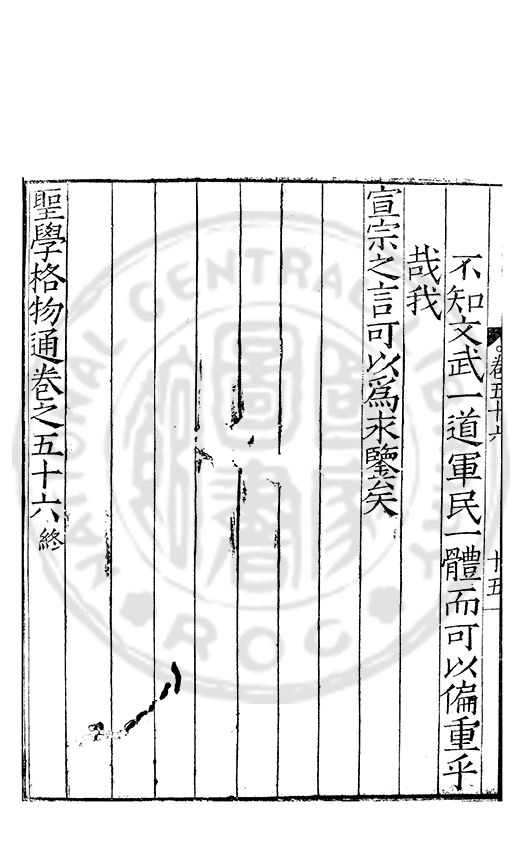 卷五十六 十五
不知文武一道軍民一體而可以偏重乎
哉我
宣宗之言可以爲永鑒矣
聖學格物通卷之五十六終
NATIONAL CENTRAL LIBRARY
ROC